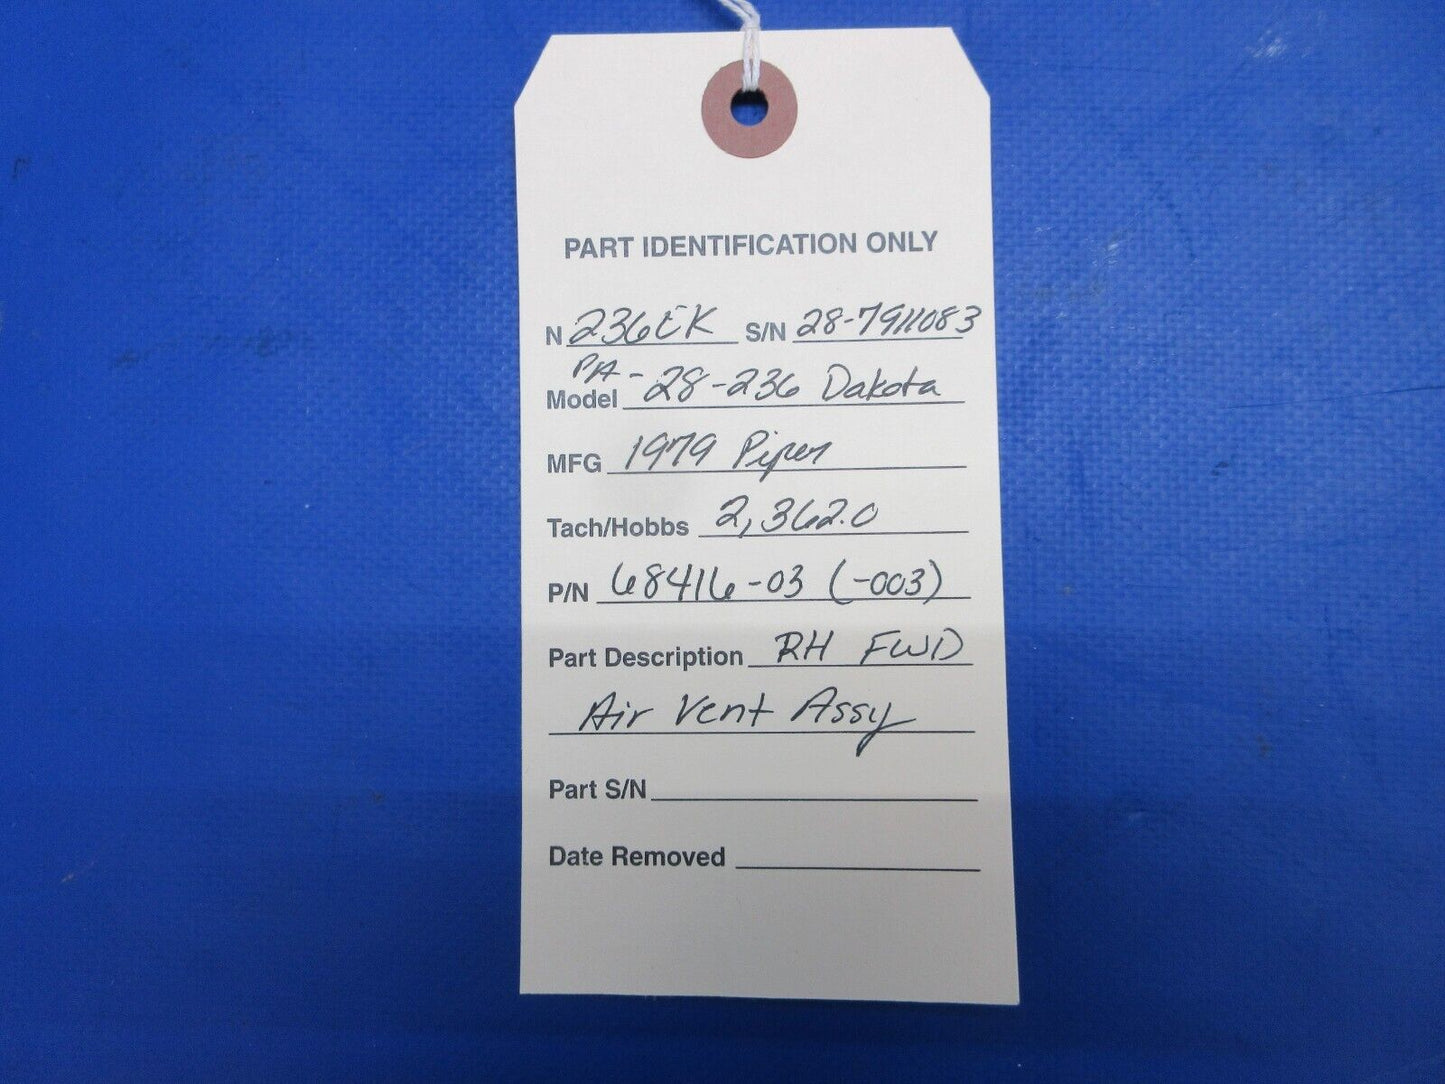 PART IDENTIFICATION ONLY
N 236EK S/N 28-7911083
Model PA-28-236 Dakota
MFG 1979 Piper
Tach/Hobbs 2,362.0
P/N 68416-03 (-003)
Part Description RH FWD
Air Vent Assy
Part S/N
Date Removed